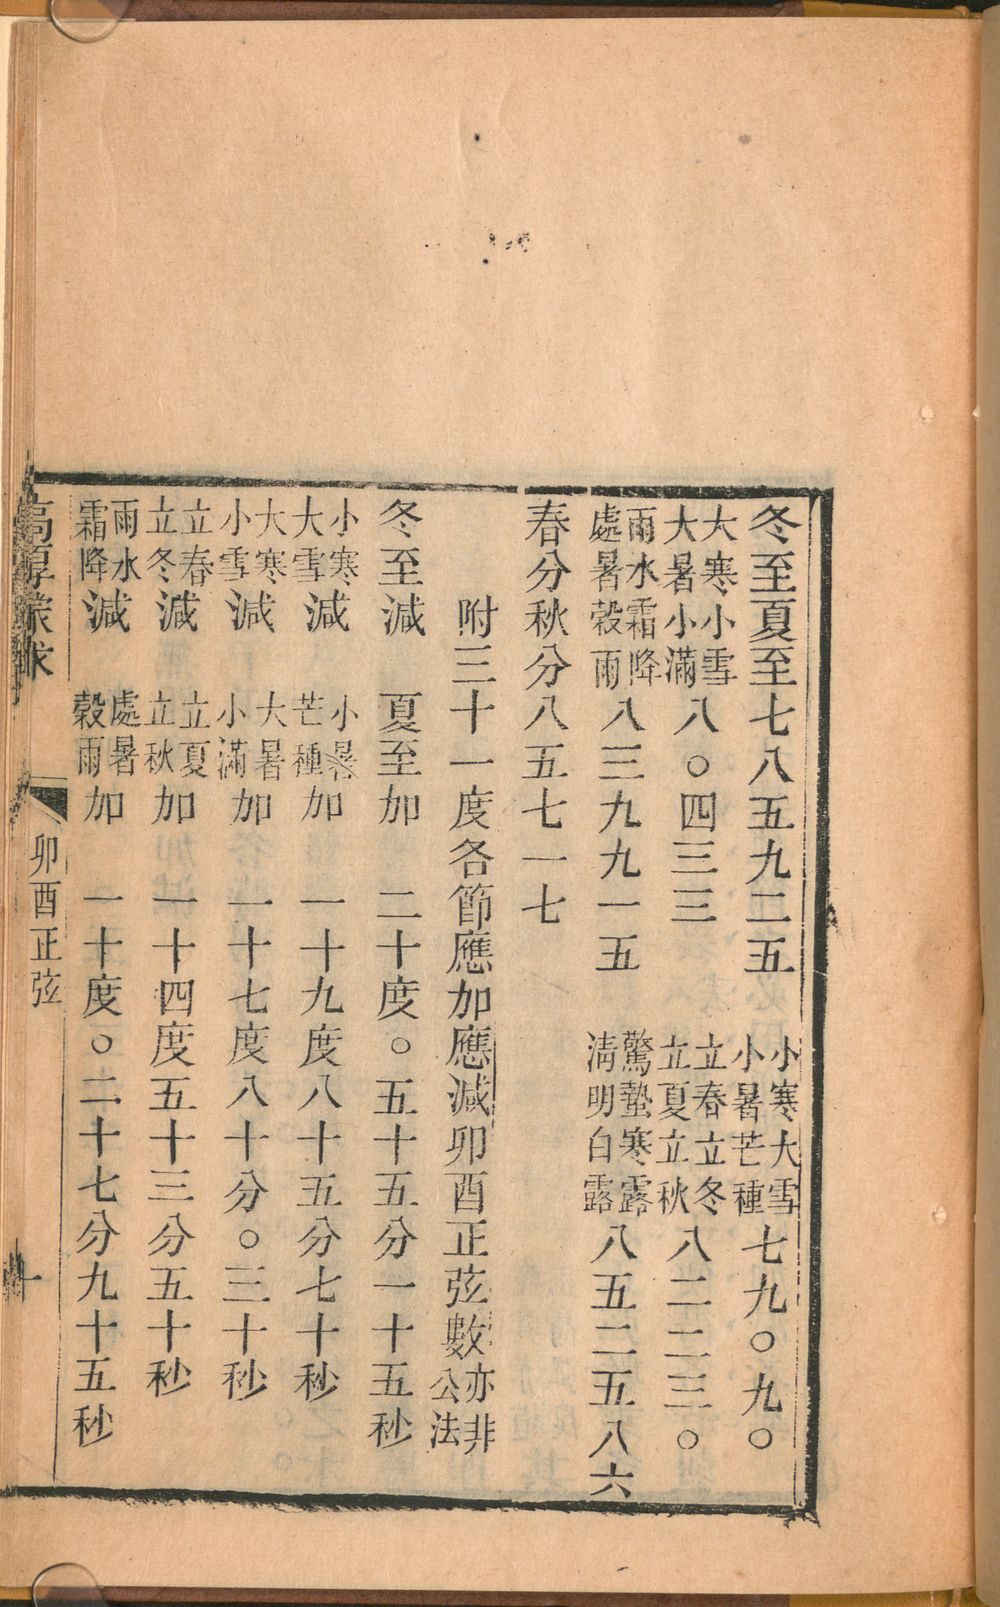 冬至夏至七八五九二五　小寒大雪小暑芒種七九〇九〇
大寒小雪大暑小滿八〇四三三　立春立冬立夏立秋八二二三〇
雨水霜降處暑穀雨八三九九一五　驚蟄寒露淸明白露八五二五八六
春分秋分八五七一七
附三十一度各節應加應減卯酉正弦數亦非公法
冬至減　夏至加　二十度〇五十五分一十五秒
小寒大雪減　小暑芒種加　一十九度八十五分七十秒
大寒小雪減　大暑小滿加　一十七度八十分〇三十秒
立春立冬減　立夏立秋加　一十四度五十三分五十秒
雨水霜降減　處暑穀雨加　一十度〇二十七分九十五秒
高厚蒙求　卯酉正弦